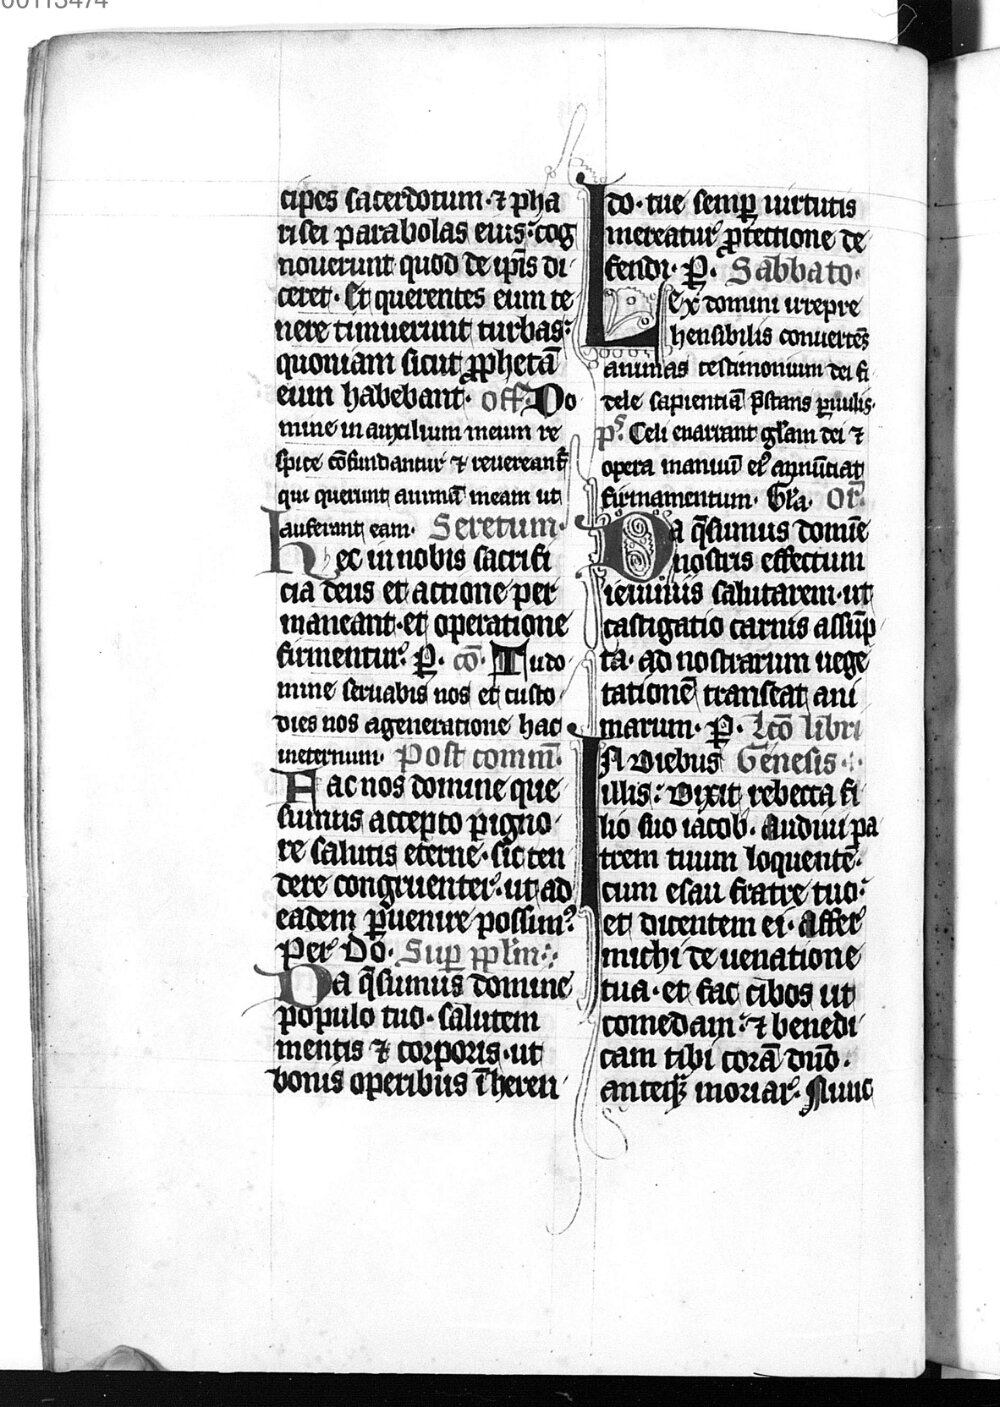 00113474
cipes sacerdotum·⁊ pha
risei parabolas eius:cog
nouerunt quod de ip̄is di
ceret· Et querentes eum te
nere timuerunt turbas:
quoniam sicut ꝓphetā
eum habebant· off Do
mine in auxilium meum re
spice cōfundantur ⁊ reuereant̄
qui querunt animā meam ut
auferant eam· Secretum·
Hec in nobis sacrifi
cia deus et actione per
maneant·et operatione
firmentur. P̲· cō· Tu do
mine seruabis nos et custo
dies nos a generatione hac
ineternum· Post comm̄·
Fac nos domine que
sumus accepto pigno
re salutis eterne·sic ten
dere congruenter·ut ad
eadem ꝑuenire possim?
Per Do· Sup̲ pplm̄·:·
Da q̄sumus domine
populo tuo· salutem
mentis ⁊ corporis·ut
bonis operibus īheren
do·tue semp̲ uirtutis
mereatur ꝓtectione de
fendi· P̲· Sabbato·
Lex domini irrepre
hensibilis conuertēs
animas testimonium dei fi
dele sapientiā p̄stans ꝑuulis·
ps Celi enarrant glām dei ⁊
opera manuū ei? annūtiat
firmamentum· Glā· Or̄·
Da q̄sumus domīe
nostris effectum
ieiuniis salutarem·ut
castigatio carnis assūp
ta· ad nostrarum uege
tationē transeat ani
marum· P̲· Lcō libri
IN diebus Genesis·:·
illis: Dixit rebecca fi
lio suo iacob· Audiui pa
trem tuum loquentē·
cum esau fratre tuo:
et dicentem ei· Affer
michi de uenatione
tua·et fac cibos ut
comedam:⁊ benedi
cam tibi corā dn̄o·
anteq̄ moriar· Nunc